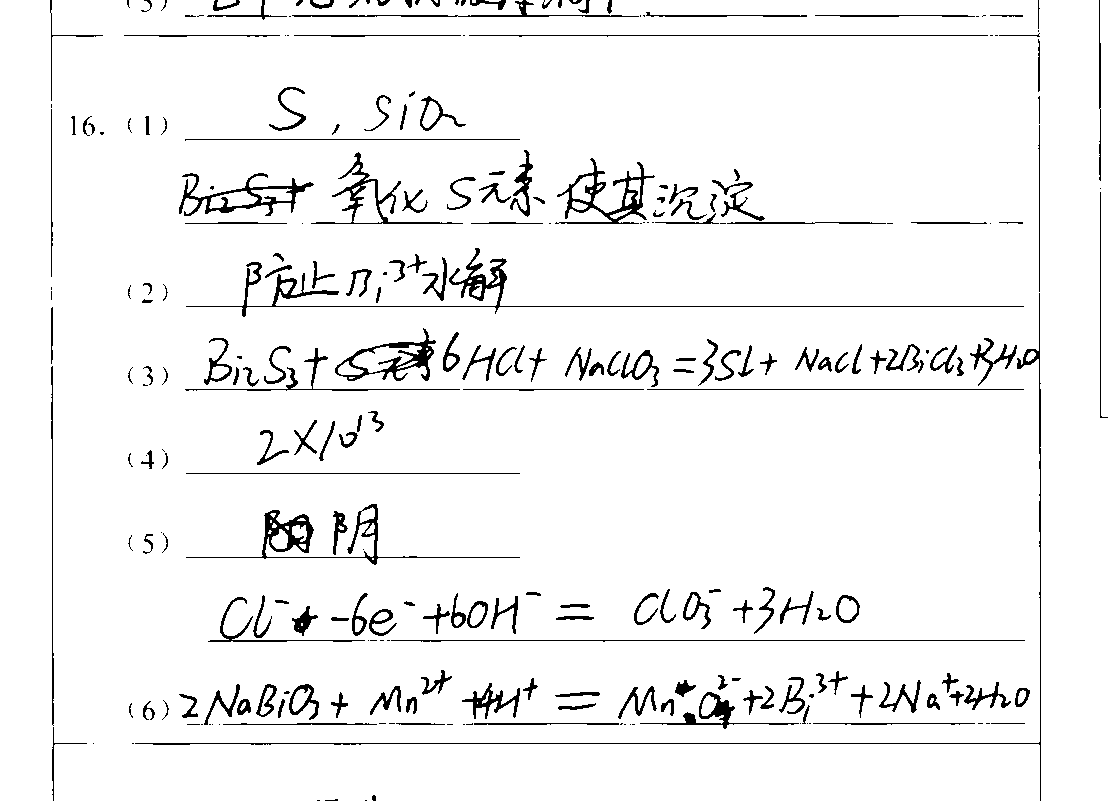 (5)
16. (1) S, SiO₂
氧化S元素使其沉淀
(2) 防止Bi³⁺水解
(3) Bi₂S₃+ 6HCl+ NaClO₃=3S↓+ NaCl+2BiCl₃+3H₂O
(4) 2×10¹³
(5) 阴
Cl⁻ -6e⁻+6OH⁻ = ClO₃⁻+3H₂O
(6) 2NaBiO₃+ Mn²⁺ +4H⁺ = MnO₄²⁻+2Bi³⁺+2Na⁺+2H₂O